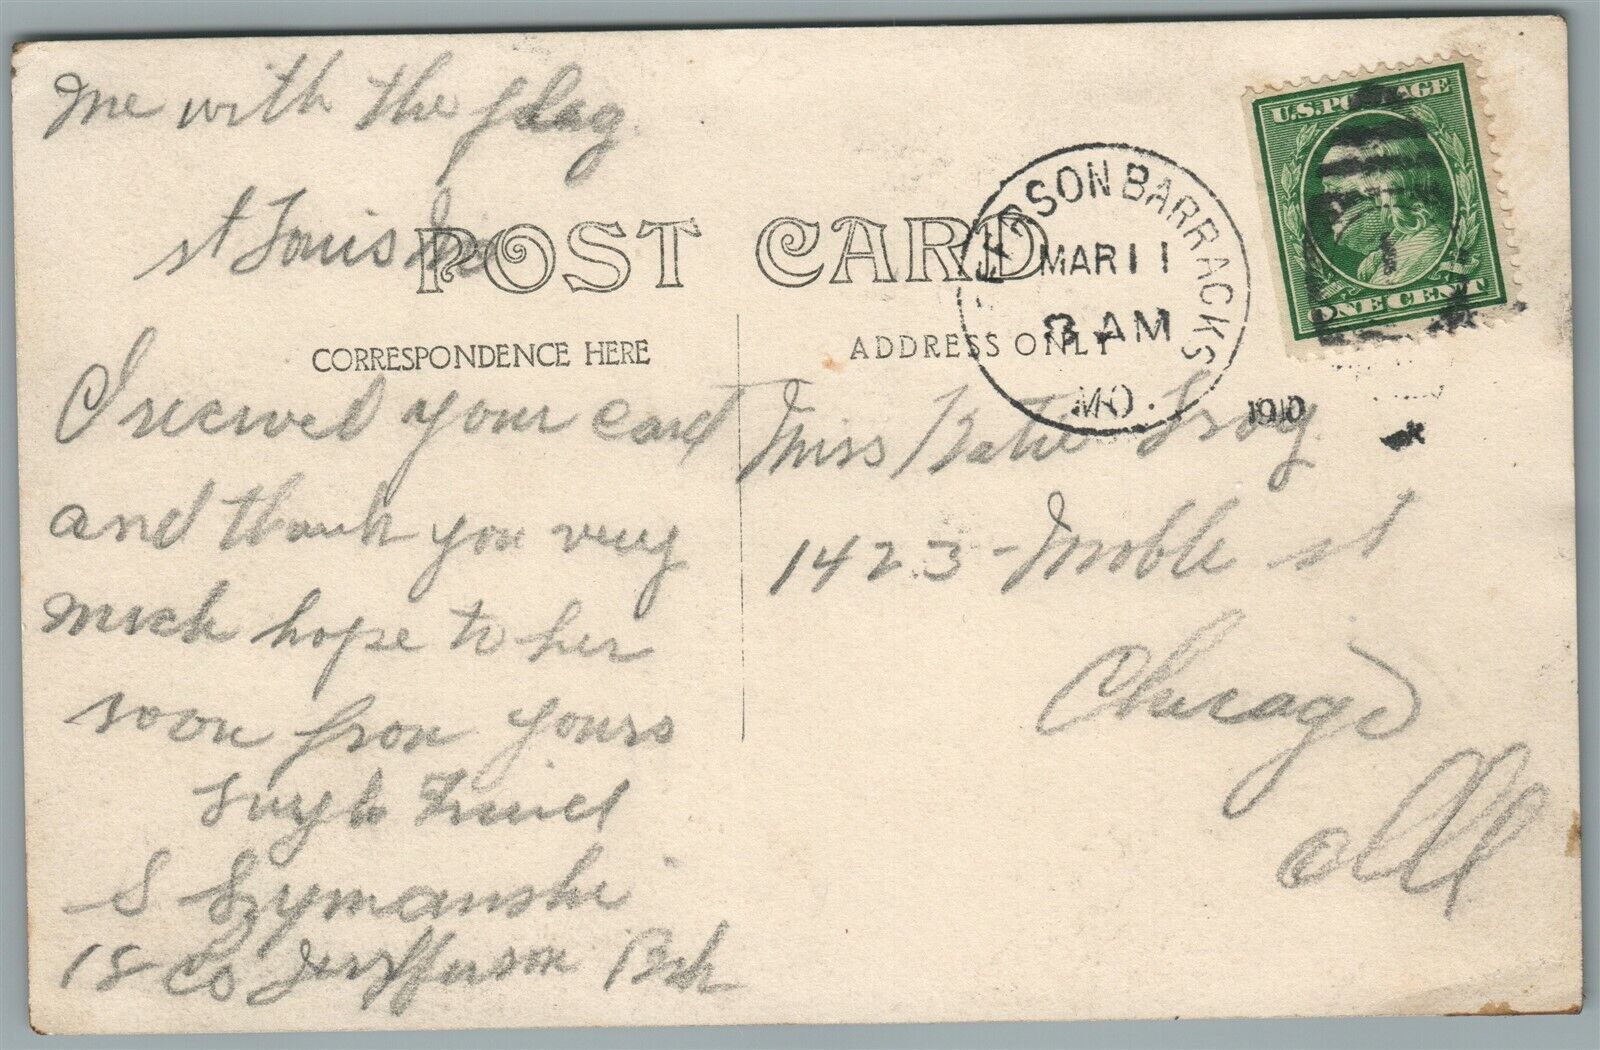 me with the flag.
st Louis Mo
POST CARD
CORRESPONDENCE HERE
ADDRESS ONLY
I recived your card
and thank you very
much hope to her
soon fron yours
Friend
S Szymanski
18 Co Jerfferson Brk
Miss Katie Troy.
1423 - Noble st
Chicago
Ill
JEFFERSON BARRACKS
MAR 11
8 AM
MO.
1910
U.S. POSTAGE
ONE CENT